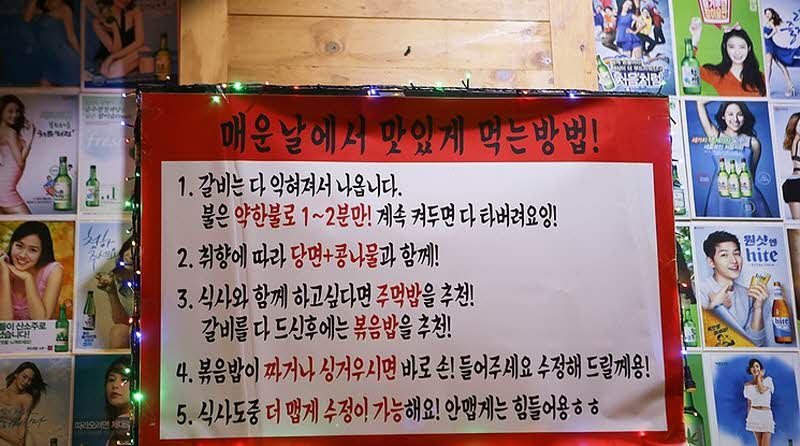 매운날에서 맛있게 먹는방법!
1. 갈비는 다 익혀져서 나옵니다.
불은 약한불로 1~2분만! 계속 켜두면 다 타버려요잉!
2. 취향에 따라 당면+콩나물과 함께!
3. 식사와 함께 하고싶다면 주먹밥을 추천!
갈비를 다 드신후에는 볶음밥을 추천!
4. 볶음밥이 짜거나 싱거우시면 바로 손! 들어주세요 수정해 드릴께용!
5. 식사도중 더 맵게 수정이 가능해요! 안맵게는 힘들어용ㅎㅎ
처음처럼
원샷엔
hite